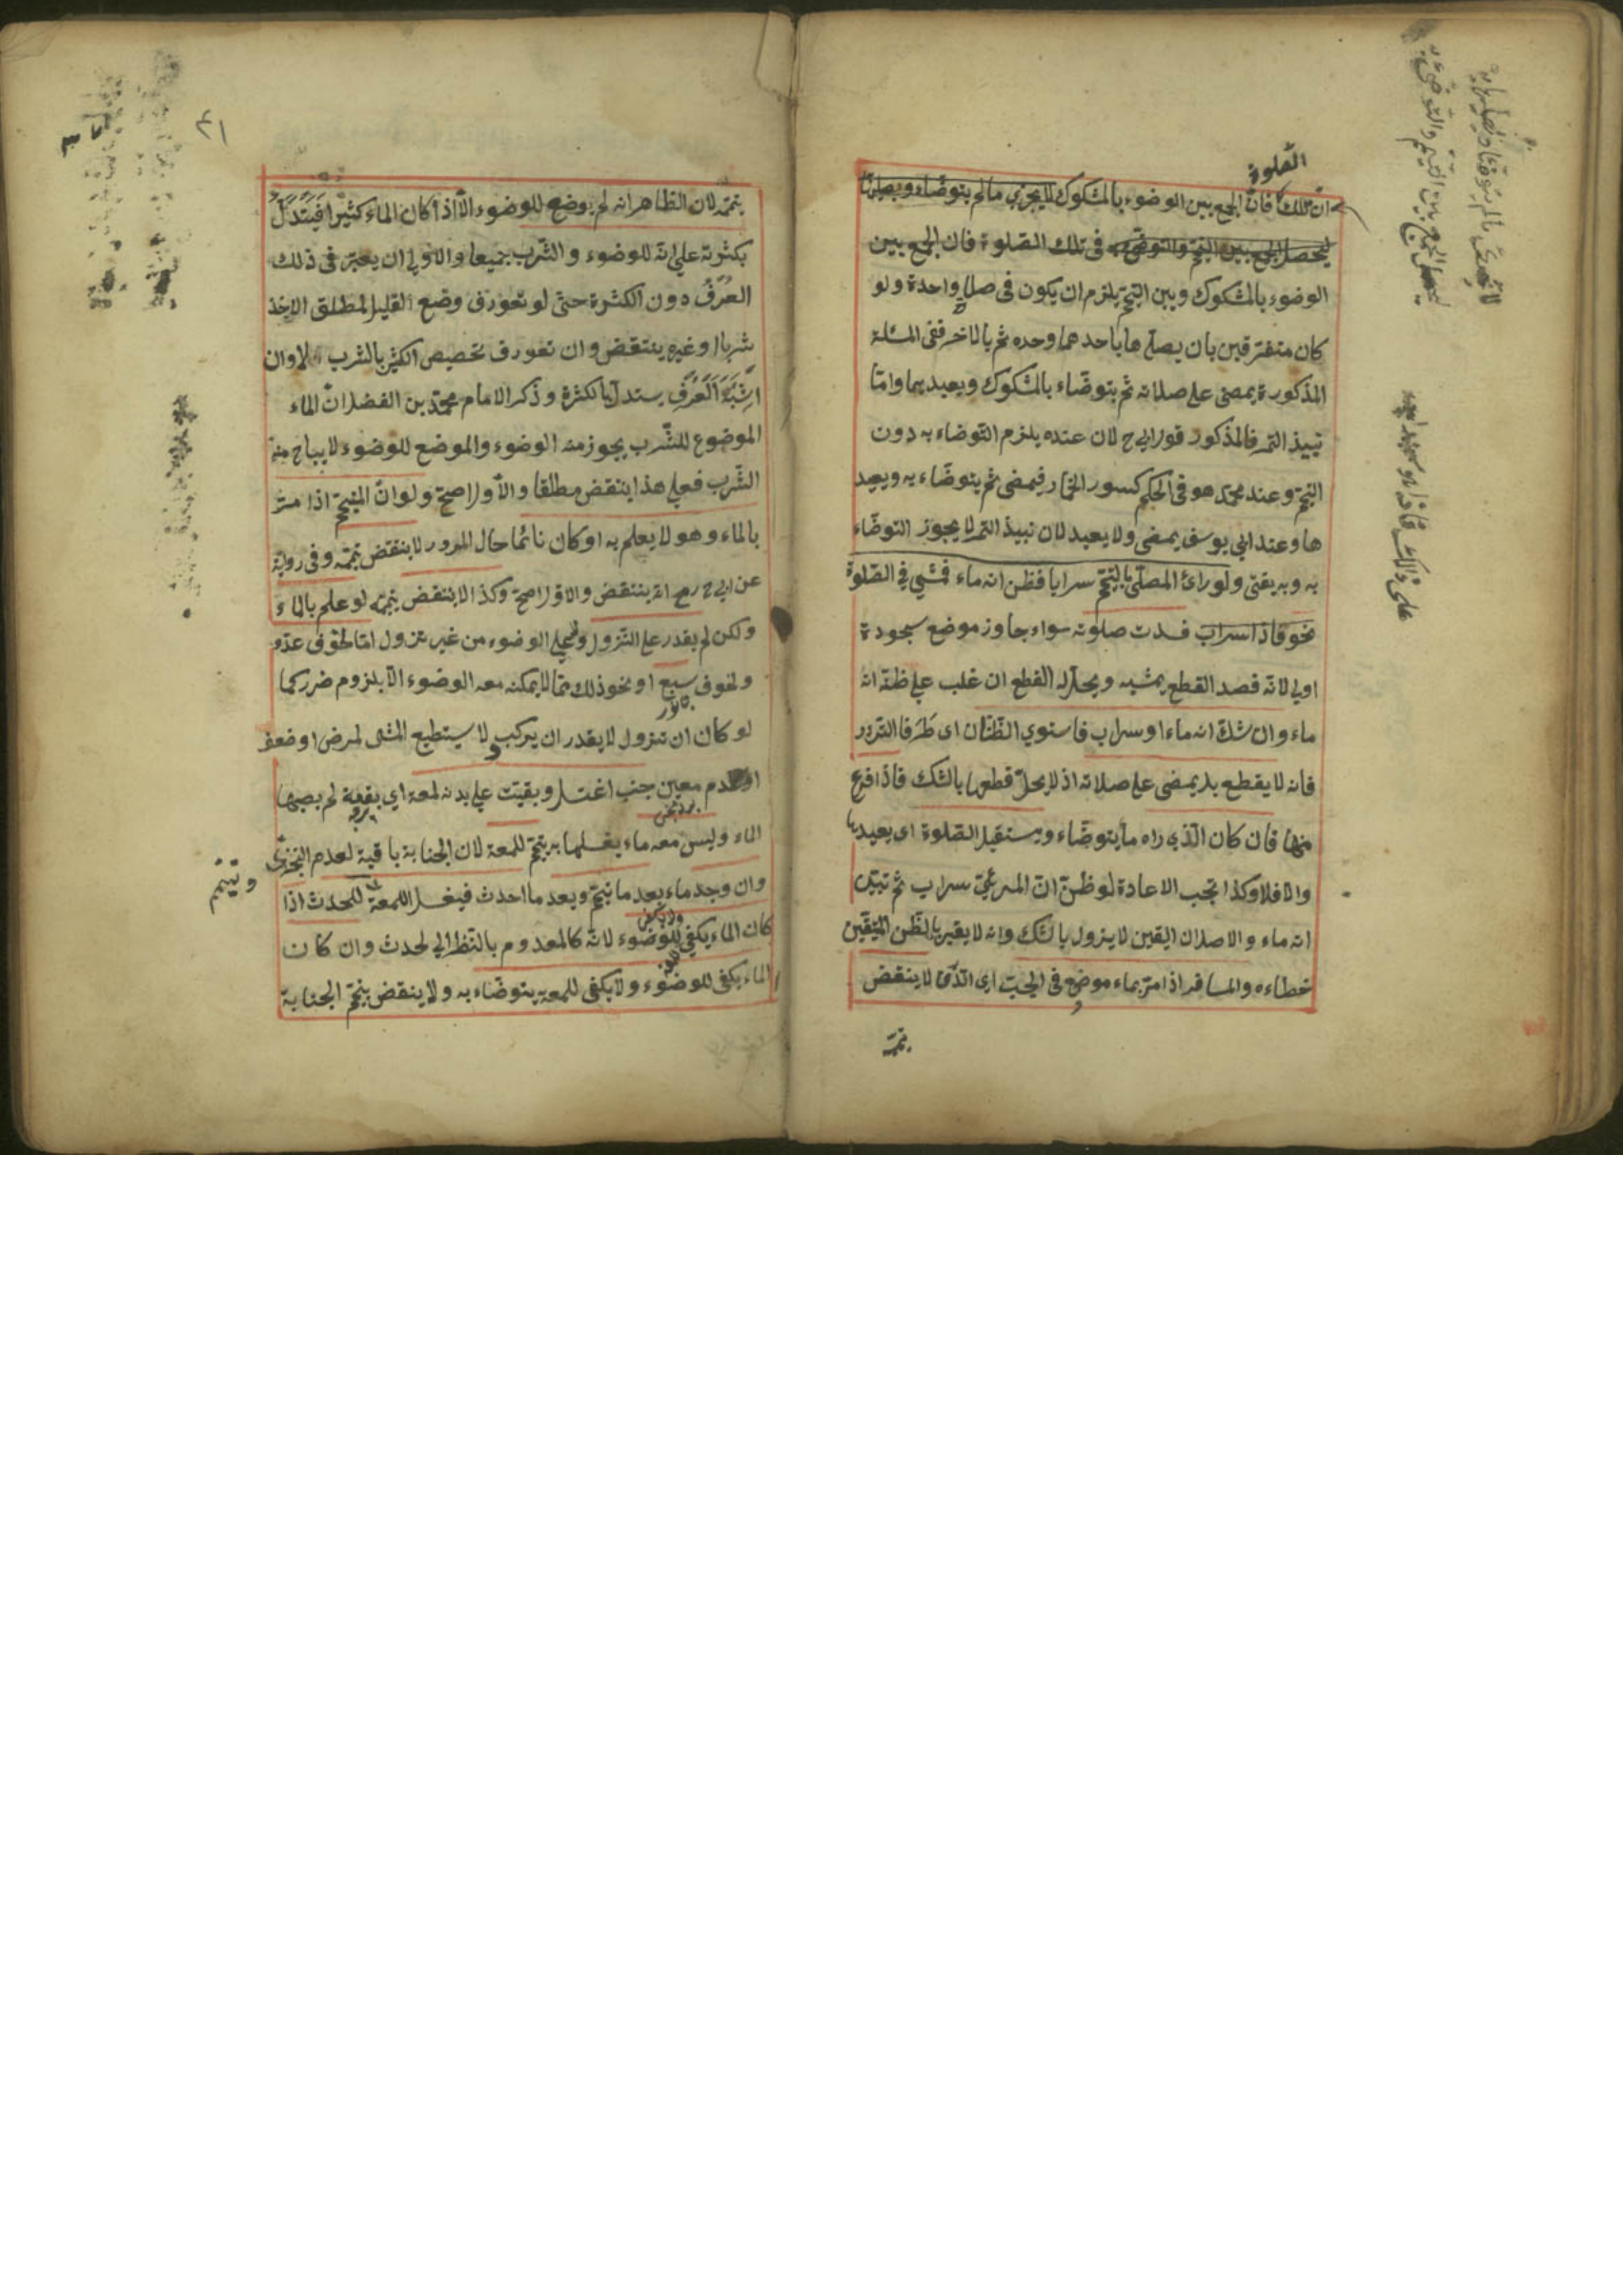 الصلوة
ان تلك فان الجمع بين الوضوء بالمشكوك لا يجزي ما لم يتوضاء ويصليها
ليحصل الجمع بين التيمم والتوضي به فى تلك الصلوة فان الجمع بين
الوضوء بالمشكوك وبين التيمم يلزم ان يكون فى صلاة واحدة ولو
كان متفرقين بان يصليها باحدهما وحده ثم بالاخر ففى المسئلة
المذكورة يمضى على صلاته ثم يتوضاء بالمشكوك ويعيدها واما
نبيذ التمر فالمذكور قول ابي ح لان عنده يلزم التوضاء به دون
التيمم وعند محمد هو فى الحكم كسور الحمار فيمضى ثم يتوضاء به ويعيد
ها وعند ابي يوسف يمضى ولا يعيد لان نبيذ التمر لا يجوز التوضاء
به وبه يفتى ولو رائ المصلى بالتيمم سرابا فظن انه ماء فمشي في الصلوة
نحو فاذا سراب فسدت صلوته سواء جاوز موضع سجوده
اولى لانه قصد القطع بمشيه ويحل له القطع ان غلب على ظنه انه
ماء وان شك انه ماء او سراب فاستوي الظنان اى طرفا التردد
فانه لا يقطع بل يمضى على صلاته اذ لا يحل قطعها بالشك فاذا فرغ
منها فان كان الذي راه ماء يتوضاء ويستقبل الصلوة اى يعيدها
والا فلا وكذا تجب الاعادة لو ظن ان المرئي سراب ثم تبين
انه ماء والاصل ان اليقين لا يزول بالشك وانه لا يقير بالظن المتيقن
خطاءه والمسافر اذا مر بماء موضع فى الحب اى الدن لا ينقض
تيممه
لا يجزئ ما لم يتوضاء ويصليها به
ليحصل الجمع بين التيمم والتوضئ به
على ذلك فاذا هو
٤١
تيممه لان الظاهر انه لم يوضع للوضوء الا اذا كان الماء كثيرا فيستدل
بكثرته على انه للوضوء والشرب جميعا والاولى ان يعتبر فى ذلك
العرف دون الكثرة حتى لو تعورف وضع القليل لمطلق الاخذ
شربا او غيره ينتقض وان تعورف تخصيص الكثير بالشرب لا وان
اشتبه العرف يستدل بالكثرة وذكر الامام محمد بن الفضل ان الماء
الموضوع للشرب يجوز منه الوضوء والموضع للوضوء لا يباح منه
الشرب فعلى هذا ينتقض مطلقا والاول اصح ولو ان المتيمم اذا مر
بالماء وهو لا يعلم به او كان نائما حال المرور لا ينتقض تيممه وفى رواية
عن ابي ح رح انه ينتقض والاول اصح وكذا لا ينتقض تيممه لو علم بالماء
ولكن لم يقدر على النزول وعلى الوضوء من غير نزول اما لخوف عدو
ولخوف سبع او نحو ذلك مما لا يمكنه معه الوضوء الا بلزوم ضرر كما
لو كان ان نزول لا يقدر ان يركب ولا يستطيع المشى لمرض او ضعف
او عدم معين جنب اغتسل وبقيت على بدنه لمعة اي بقعة لم يصبها
الماء وليس معه ماء يغسلها به يتيمم للمعة لان الجنابة باقية لعدم التجزى
وتيمم
وان وجد ماء بعد ما تيمم وبعد ما احدث فيغسل اللمعة للحدث اذا
كان الماء يكفي للوضوء لانه كالمعدوم بالنظر الى الحدث وان كان
الماء يكفى للوضوء ولا يكفى للمعة يتوضاء به ولا ينقض تيمم الجنابة